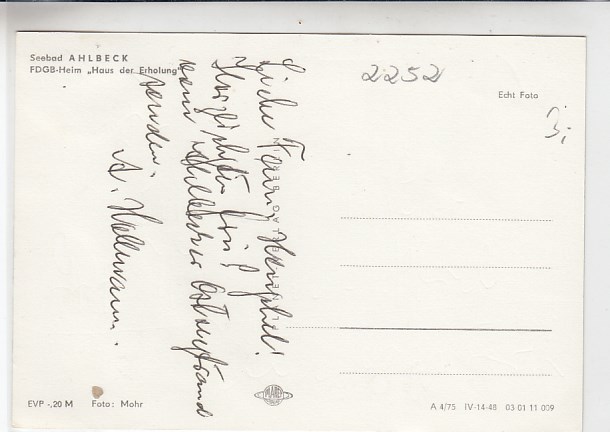 Seebad AHLBECK
FDGB-Heim „Haus der Erholung“
Liebe Fam. Hempel!
Herzlichsten Gruß
vom Ahlbecker Ostseestrand
senden
A. Hallmann.
2252
Echt Foto
PLANET
EVP -,20 M Foto: Mohr
A 4/75 IV-14-48 03 01 11 009